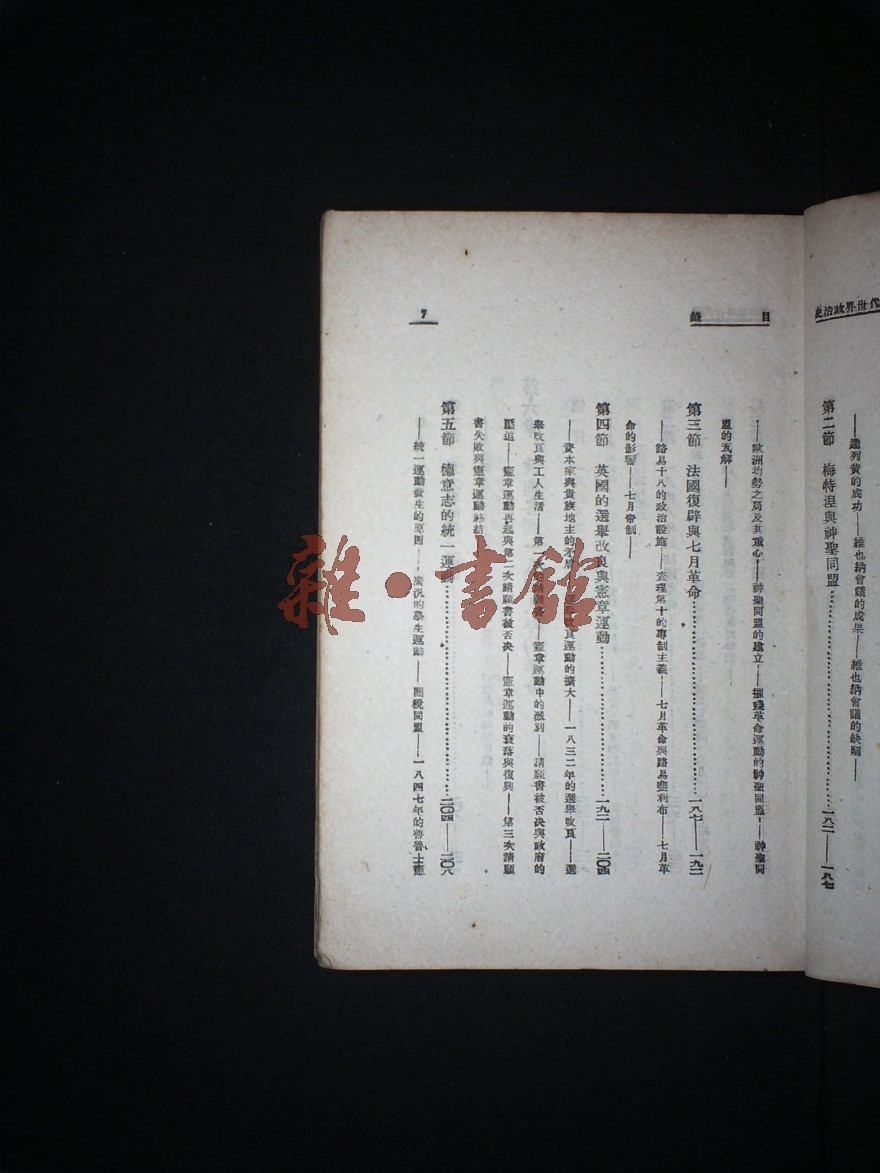 代世界政治史
——達列黃的成功——維也納會議的成果——維也納會議的缺陷——
第二節 梅特涅與神聖同盟……一八二——一八七
目錄
——歐洲均勢之局及其重心——神聖同盟的建立——摧殘革命運動的神聖同盟——神聖同
盟的瓦解——
第三節 法國復辟與七月革命……一八七——一九二
——路易十八的政治設施——查理第十的專制主義——七月革命與路易斐利布——七月革
命的影響——七月帝制——
第四節 英國的選舉改良與憲章運動……一九二——二〇四
——資本家與貴族地主的矛盾改良運動的擴大——一八三二年的選舉改良——選
舉改良與工人生活——第一次——憲章運動中的派別——請願書被否決與政府的
壓迫——憲章運動再起與第二次請願書被否決——憲章運動的衰落與復興——第三次請願
書失敗與憲章運動終結
第五節 德意志的統一運動……二〇四——二〇八
——統一運動發生的原因——廣汎的學生運動——關稅同盟——一八四七年的普魯士憲
7
雜·書館